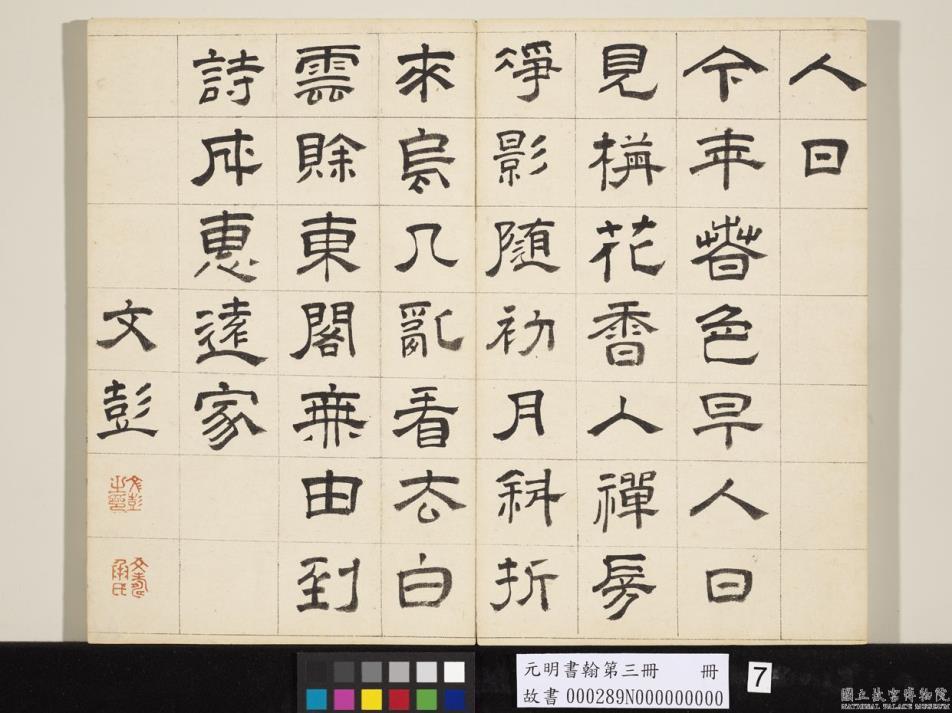 人日
今年春色早人日
見梅花香入禪房
淨影隨初月斜折
來烏几亂看去白
雲賒東閣無由到
詩成惠遠家
文彭
文彭之印
文壽承氏
元明書翰第三冊 冊
故書 000289N000000000
7
國立故宮博物院
NATIONAL PALACE MUSEUM